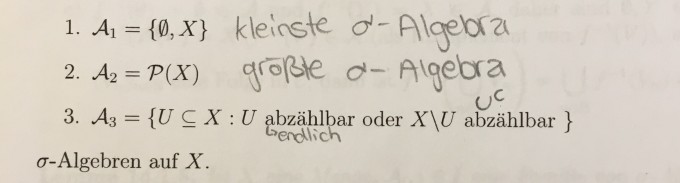 1. 𝒜₁ = {∅, X} kleinste σ-Algebra
2. 𝒜₂ = 𝒫(X) größte σ-Algebra
3. 𝒜₃ = {U ⊆ X : U abzählbar oder X\U abzählbar }
Uᶜ
endlich
σ-Algebren auf X.